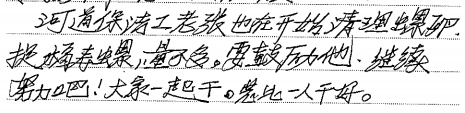 河道保洁工老张也在开始清理螺卵.
投病毒螺,量不多。要鼓励他.继续
努力吧!大家一起干。总比一人干好。